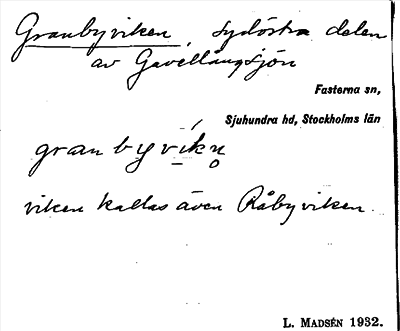 Granbyviken, sydöstra delen
av Gavellångsjön
Fasterna sn,
Sjuhundra hd, Stockholms län
granbyvíkn̥
viken kallas även Råbyviken.
L. MADSÉN 1932.